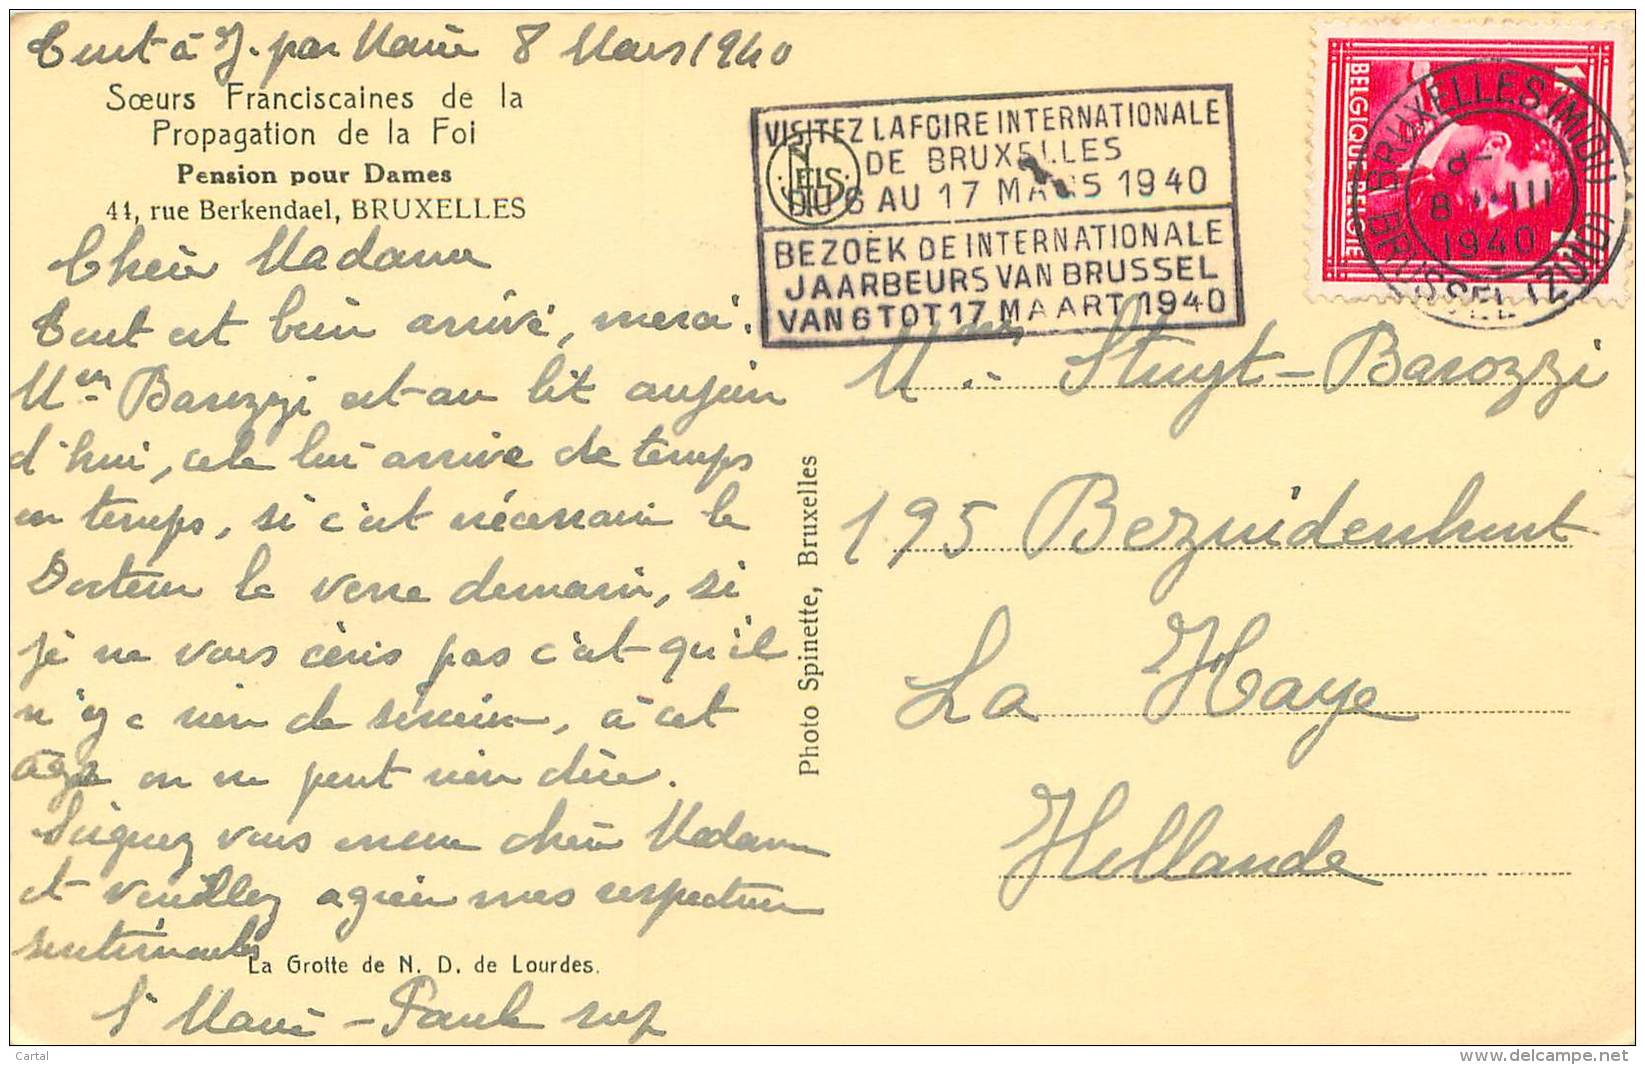 Tout à J. par Marie 8 Mars 1940
Sœurs Franciscaines de la
Propagation de la Foi
Pension pour Dames
41, rue Berkendael, BRUXELLES
Chère Madame
Tout est bien arrivé, merci.
Mme Barozzi est au lit aujour
d'hui, cela lui arrive de temps
en temps, si c'est nécessaire le
Docteur la verra demain, si
je ne vous écris pas c'est qu'il
n'y a rien de sérieux, à cet
âge on ne peut rien dire.
Soignez vous chère Madame
et veuillez agréer mes respectueux
sentiments
Sr Marie-Paule sup
La Grotte de N. D. de Lourdes.
Photo Spinette, Bruxelles
NELS
VISITEZ LA FOIRE INTERNATIONALE
DE BRUXELLES
DU 6 AU 17 MARS 1940
BEZOEK DE INTERNATIONALE
JAARBEURS VAN BRUSSEL
VAN 6 TOT 17 MAART 1940
BELGIQUE-BELGIE
BRUXELLES (MIDI)
8-
8 III
1940
BRUSSEL (ZUID)
Mme Stuyt-Barozzi
195 Bezuidenhout
La Haye
Hollande
Cartal
www.delcampe.net